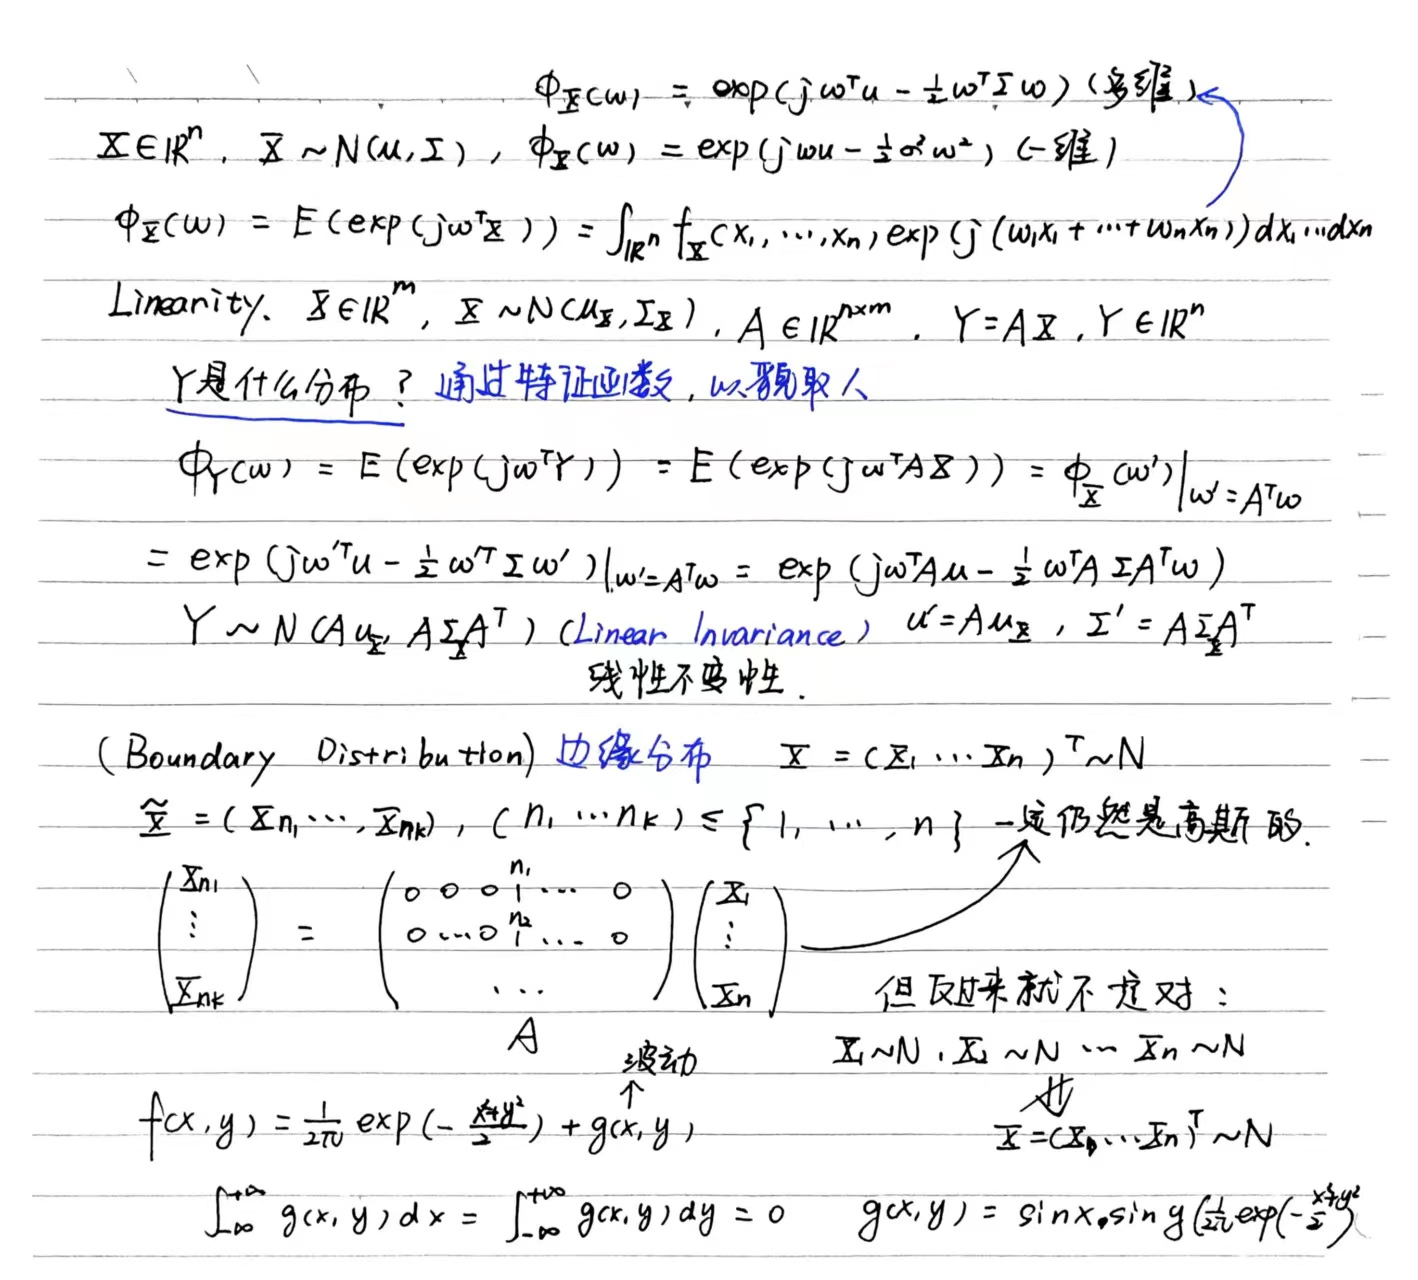 Φ_X(ω) = exp(jω^T u - 1/2 ω^T Σ ω) (多维)
X∈ℝ^n, X ~ N(u, Σ), Φ_X(ω) = exp(jωu - 1/2 σ²ω²) (一维)
Φ_X(ω) = E(exp(jω^T X)) = ∫_{ℝ^n} f_X(x₁, ⋯, xₙ) exp(j(ω₁x₁ + ⋯ + ωₙxₙ)) dx₁⋯dxₙ
Linearity. X∈ℝ^m, X ~ N(u_X, Σ_X), A∈ℝ^{n×m}. Y = AX, Y∈ℝ^n
Y是什么分布? 通过特征函数, 以貌取人
Φ_Y(ω) = E(exp(jω^T Y)) = E(exp(jω^T AX)) = Φ_X(ω')|_{ω'=A^T ω}
= exp(jω'^T u - 1/2 ω'^T Σ ω')|_{ω'=A^T ω} = exp(jω^T Au - 1/2 ω^T A Σ A^T ω)
Y ~ N(Au_X, AΣ_X A^T) (Linear Invariance) u' = Au_X, Σ' = AΣ_X A^T
线性不变性.
(Boundary Distribution) 边缘分布 X = (X₁ ⋯ Xₙ)^T ~ N
X̃ = (X_{n₁} ⋯, X_{n_k}), (n₁ ⋯ n_k) ⊆ {1, ⋯, n} 一定仍然是高斯的.
( X_{n₁} ⋮ X_{n_k} ) = ( 0 0 0 1 ⋯ 0 0 ⋯ 0 1 ⋯ 0 ⋯ ) ( X₁ ⋮ Xₙ )
n₁
n₂
A
但反过来就不一定对:
X₁~N, X₂~N ⋯ Xₙ~N
⇓
X = (X₁, ⋯ Xₙ)^T ~ N
波动
↑
f(x, y) = 1/2π exp(- (x²+y²)/2) + g(x, y)
∫_{-∞}^{+∞} g(x, y) dx = ∫_{-∞}^{+∞} g(x, y) dy = 0 g(x, y) = sinx·siny(1/2π exp(- (x²+y²)/2)